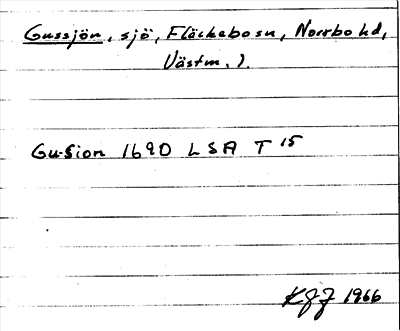 Gussjön, sjö, Fläckebo sn, Norrbo hd,
Västm. ).
Gusion 1690 LSA T 15
KGJ 1966